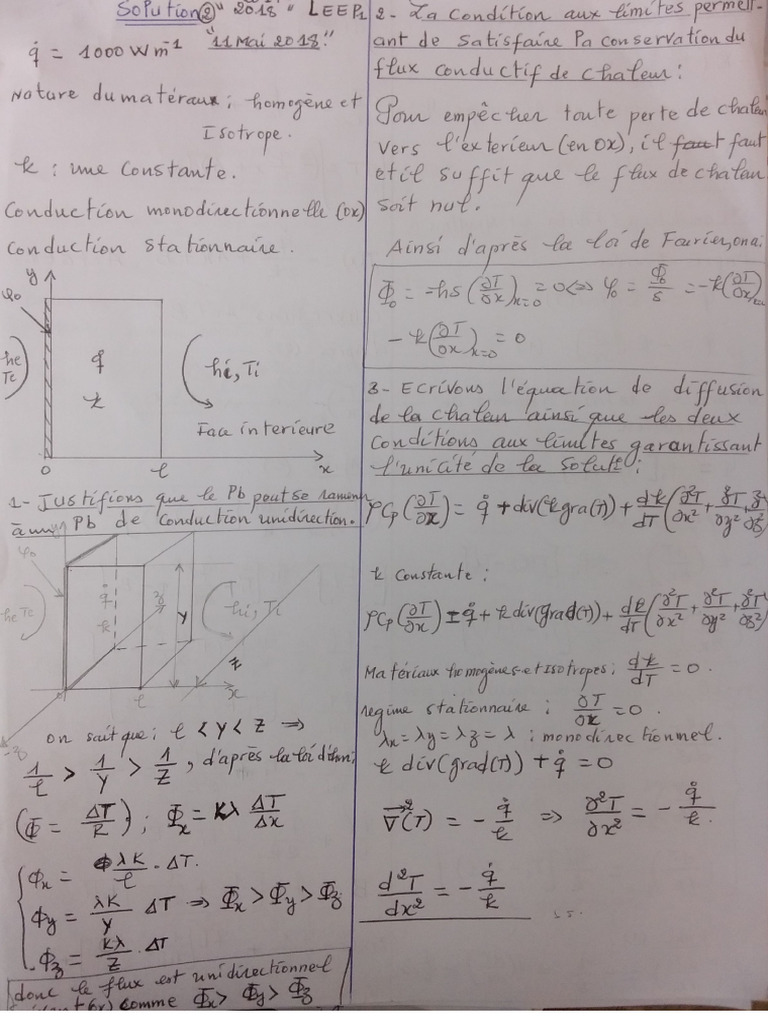 Solution ② "2018" LEEP1
q̇ = 1000 W m⁻¹ "11 Mai 2018"
Nature du matéraux : homogène et
Isotrope.
k : une constante.
Conduction monodirectionnelle (ox)
Conduction stationnaire.
y
φ₀
he
Te
q̇
k
hi, Ti
Face interieure
0 ℓ x
1- Justifions que le Pb peut se ramen
à un Pb de conduction unidirection.
φ₀
he Te
q̇
k
y
hi, Ti
z
ℓ x
on sait que : ℓ < y < z ⟹
1/ℓ > 1/y > 1/z, d'après la loi d'ohm,
(Φ = ΔT/R) ; Φx = Kλ ΔT/Δx
Φx = λK/ℓ · ΔT.
Φy = λK/y ΔT ⟹ Φx > Φy > Φz
Φz = Kλ/z · ΔT
donc le flux est unidirectionnel
comme Φx > Φy > Φz
2- La condition aux limites permett-
ant de satisfaire la conservation du
flux conductif de chaleur :
Pour empêcher toute perte de chaleu
vers l'exterieur (en ox), il faut
et il suffit que le flux de chaleur
soit nul.
Ainsi d'après la loi de Fourier, on a :
Φ₀ = -hs (∂T/∂x)ₓ₌₀ = 0 ⟺ φ₀ = Φ₀/s = -k(∂T/∂x)ₓ₌₀
-k(∂T/∂x)ₓ₌₀ = 0
3- Ecrivons l'équation de diffusion
de la chaleur ainsi que les deux
conditions aux limites garantissant
l'unicité de la solut° :
ρCp(∂T/∂x) = q̇ + div(k gra(T)) + dk/dT(∂²T/∂x² + ∂²T/∂y² + ∂²T/∂z²
k constante :
ρCp(∂T/∂x) = q̇ + k div(grad(T)) + dk/dT(∂²T/∂x² + ∂²T/∂y² + ∂²T/∂z²
Matériaux homogènes et Isotropes ; dk/dT = 0.
regime stationnaire ; ∂T/∂x = 0.
λx = λy = λz = λ ; monodirectionnel.
k div(grad(T)) + q̇ = 0
∇²(T) = - q̇/k ⟹ ∂²T/∂x² = - q̇/k.
d²T/dx² = - q̇/k